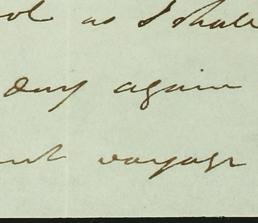 as I shall
day again
voyage